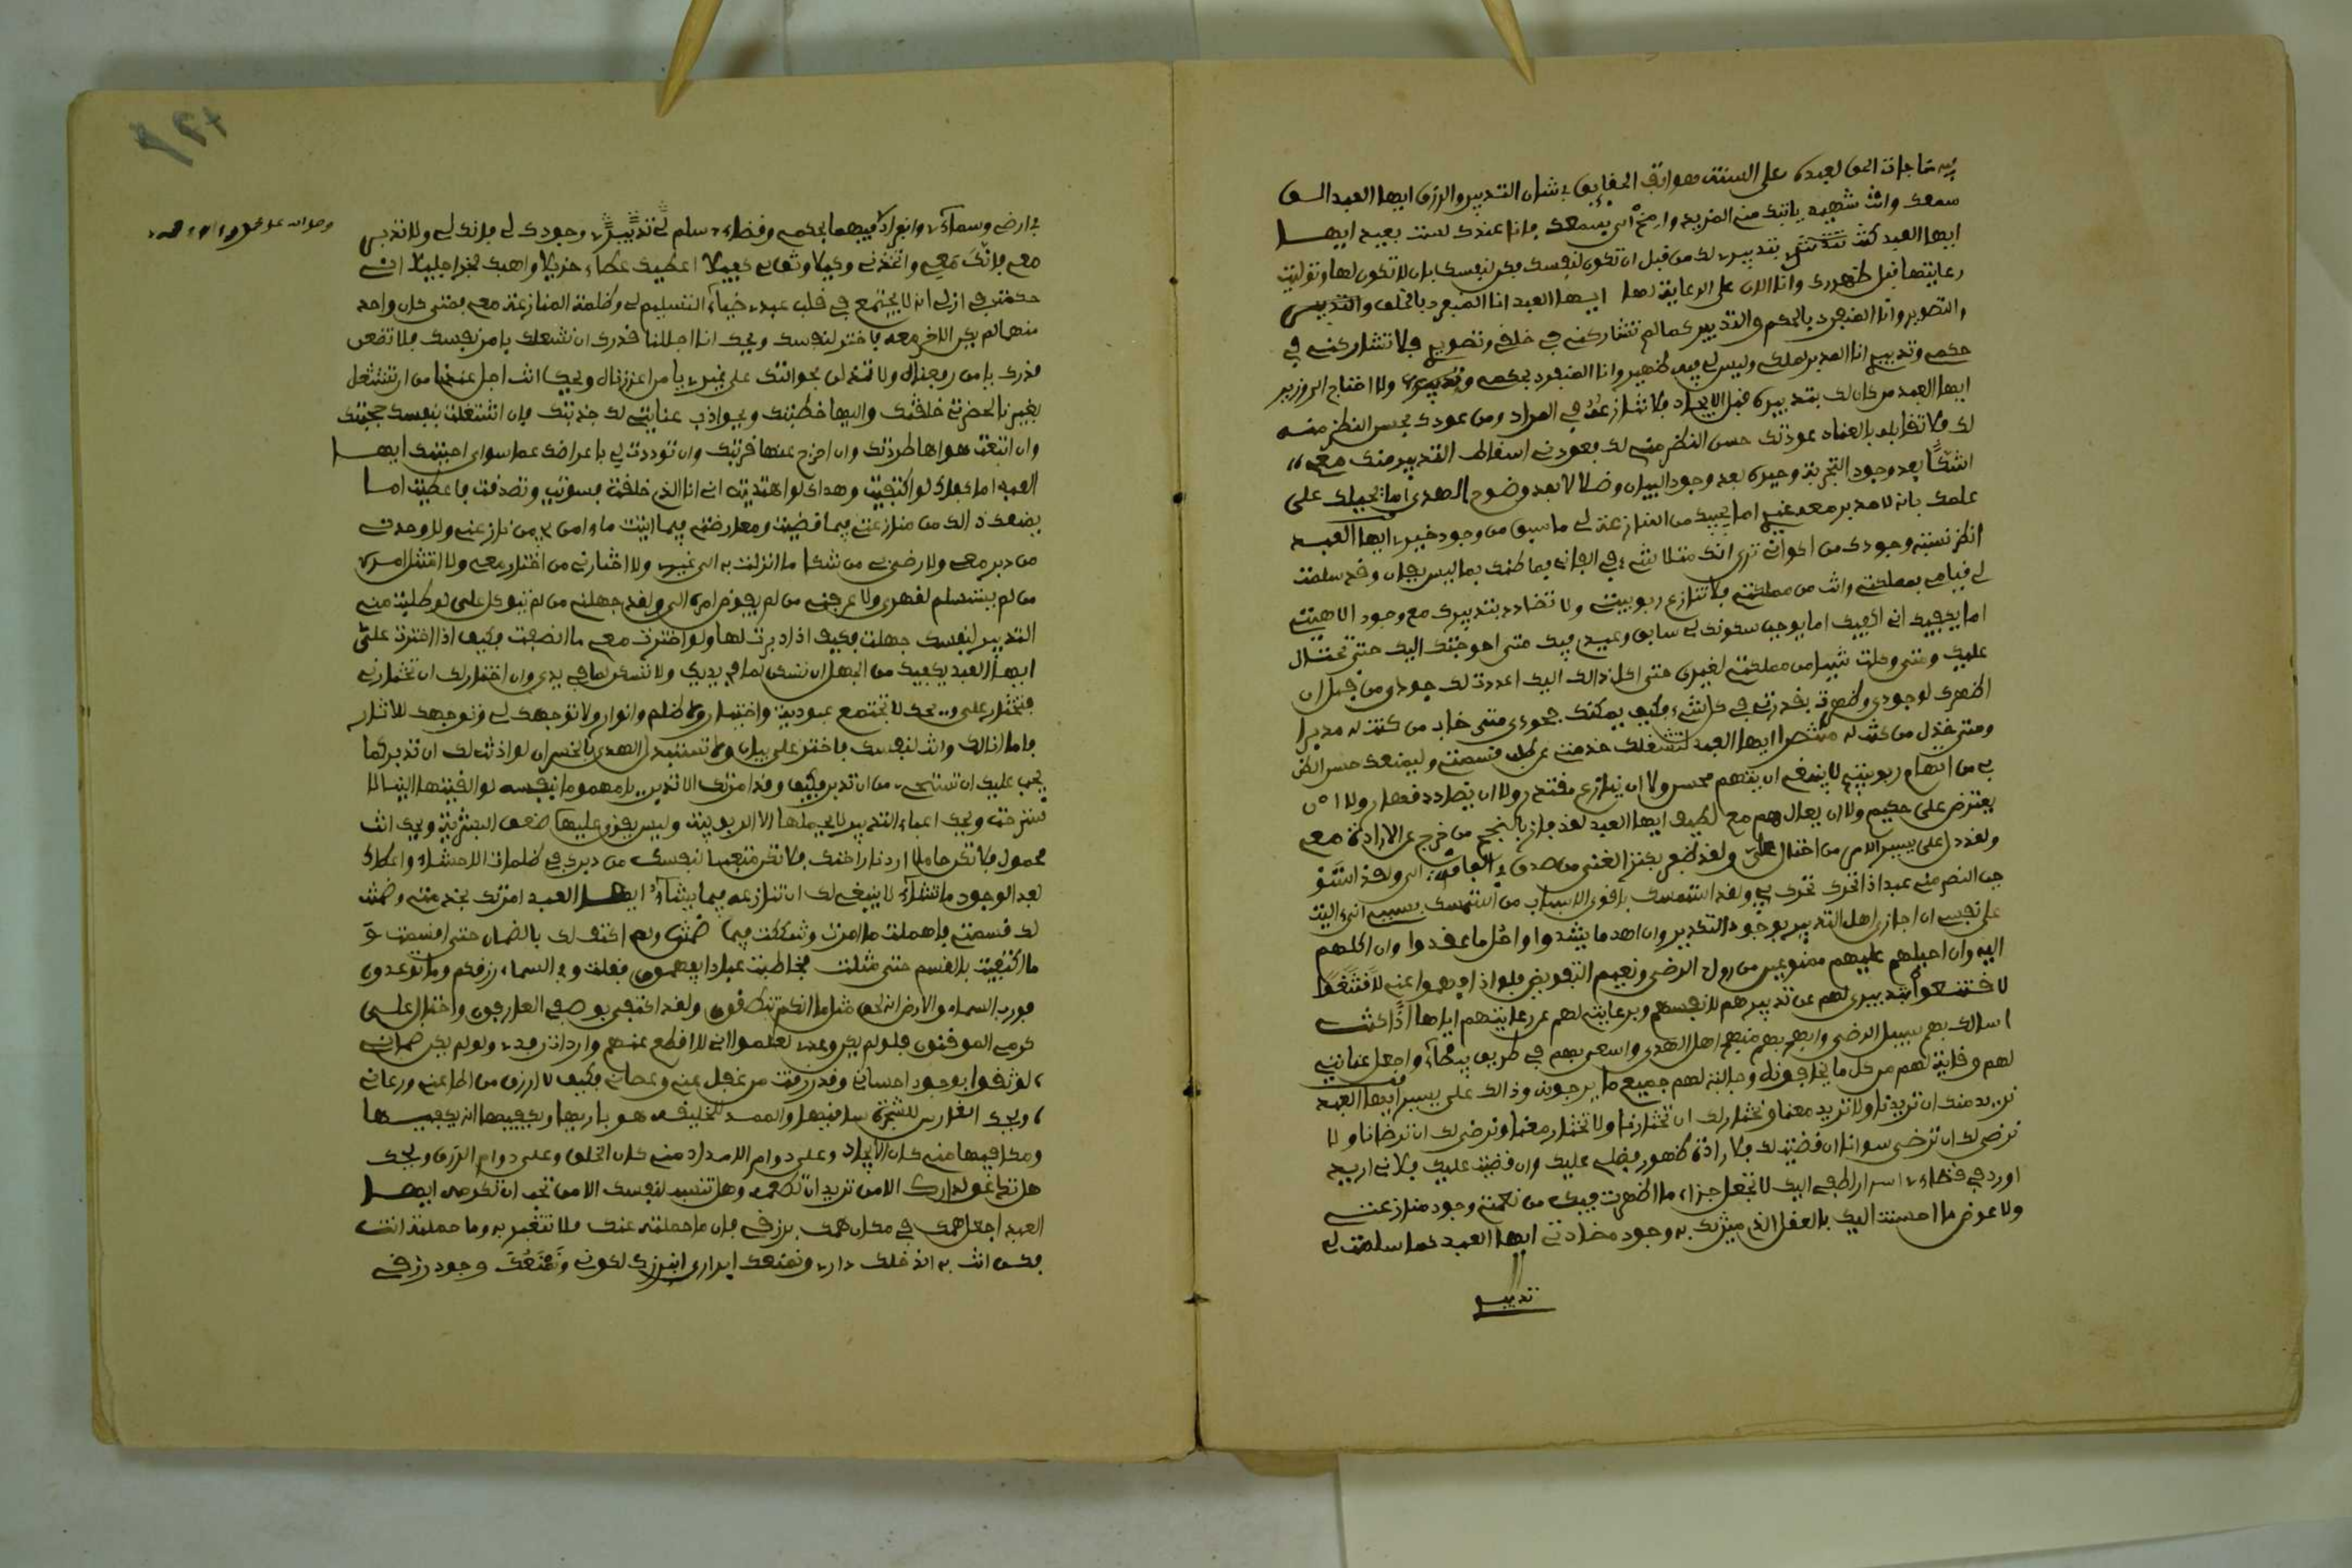 فيه مناجات الحق لعبده على السنة هواتف الحقايق في شان التدبير والرزق ايها العبد الق
سمعك وانت شهيد ياتيك مني المزيد واصغ الي بسمعك فانا عندك لست ببعيد ايها
ايها العبد كنت بتدبيري لك من قبل ان تكون لنفسك فكن لنفسك بان لا تكون لها وتوليت
رعايتها قبل ظهورك وانا الان على الرعاية لها ايها العبد انا المنفرد بالخلق والتدبير
والتصوير وانا المنفرد بالحكم والتدبير كما لم تشاركني في خلقي وتصويري فلا تشاركني في
حكمي وتدبيري انا المدبر لملكي وليس لي فيه ظهير وانا المنفرد بحكمي وتدبيري ولا احتاج الى وزير
ايها العبد من كان لك بتدبيره قبل الايجاد فلا تنازعه في المراد ومن عودك بحسن النظر منه
لك فلا تقابله بالعناد عودتك حسن النظر مني لك فعودني اسقاط التدبير منك معي
اشكا بعد وجود التجربة وحيرة بعد وجود البيان وضلالا بعد وضوح الهدى اما يحيلك على
علمك بانه لا مدبر معه غيري اما يجيبك من المنازعة لي ما سبق من وجود خيري ايها العبد
انظر نسبة وجودك من اكواني ترى انك متلاشي في الفاني فما ظنك بما ليس بفان وقد سلمت
لي قيامي بمملكتي وانت من مملكتي فلا تنازع ربوبيتي ولا تضادد بتدبيرك مع وجود الاهيتي
اما يكفيك اني اكفيك اما يوجب سكونك لي سابق وعيدي فيك متى احوجتك اليك حتى تحتال
عليك ومتى وكلت شيئا من مملكتي لغيري حتى اكل ذالك اليك اعددت لك جودي من قبل ان
اظهرك لوجودي وظهرت بقدرتي في كل شيء فكيف يمكنك جحودي متى خاب من كنت له مدبرا
ومتى خذل من كنت له منتصرا ايها العبد لتشغلك خدمتي عن طلب قسمتي وليمنعك حسن الظن
بي من اتهام ربوبيتي لا ينبغي ان يتهم محسن ولا ان ينازع مقتدر ولا ان يضادد قهار ولا ان
يعترض على حكيم ولا ان يعال هم مع لطيف ايها العبد لقد فاز بالنجح من خرج عن الارادة معي
ولقد دل على يسير الامر من احتال علي ولقد ظفر بكنز الغنى من صدق في الفاقة الي ولقد استو
جب النصر مني عبد اذا تحرك تحرك بي ولقد استمسك باقوى الاسباب من استمسك بسببي اني اليت
على نفسي ان اجازي اهل التدبير بوجود التكدير وان اهدم ما يشدوا واحل ما عقدوا وان اكلهم
اليه وان احيلهم عليهم ممنوعين من روح الرضى ونعيم التفويض فلو اذ افهموا عني لاقتنعوا
لاقتنعوا بتدبيري لهم عن تدبيرهم لانفسهم وبرعايتي لهم عن رعايتهم اياها اذا كنت
اسالك بهم سبيل الرضى وانهج بهم منهج اهل الهدى واسعى بهم في طريق بيضاء واجعل عنايتي
لهم وقاية لهم من كل ما يخافونه وجالبة لهم جميع ما يرجونه وذالك علي يسير ايها العبد
نريد منك ان تريدنا ولا تريد معنا ونختار لك ان تختارنا ولا تختار معنا ونرضى لك ان ترضانا ولا
نرضى لك ان ترضى سوانا ان قضيت لك فلارادتي ظهور فضلي عليك وان قضيت عليك فلاني اريد
اورد في قضائي اسرار لطفي اليك لا تجعل جزاء ما اظهرت فيك من نعمتي وجود منازعتي
ولا عوض ما احسنت اليك بالعقل الذي ميزتك به وجود مضادتي ايها العبد كما سلمت لي
تدبيري
في ارضي وسمائي وانفرادي فيهما بحكمي وقضائي سلم لي تدبيري وجودك لي فانك لي ولا تدبر
معي فانك معي واتخذني وكيلا وثق بي كفيلا اعطيك عطاء جزيلا واهبك فخرا جليلا اني
حكمت في ازلي انه لا يجتمع في قلب عبدي ضياء التسليم لي وظلمة المنازعة معي فمتى كان واحد
منهما لم يكن الاخر معه فاختر لنفسك ويحك انا اجللنا قدرك ان نشغلك بامر نفسك فلا تضعن
قدرك يا من رفعناه ولا تذلن بحوالتك على غيري يا من اعززناه ويحك انت اجل عندنا من ان تشتغل
بغيرنا لحضرتي خلقتك واليها خطبتك وبجواذب عنايتي لك جذبتك فان اشتغلت بنفسك حجبتك
وان اتبعت هواها طردتك وان اخرج عنها قربتك وان توددت لي باعراضك عما سواي احببتك ايها
العبد اما كفاك لو اكتفيت وهداك لو اهتديت اني انا الذي خلقت فسويت وتصدقت فاعطيت اما
يمنعك ذالك من منازعتي فيما قضيت ومعارضتي فيما اتيت ما امن بي من نازعني ولا وحدني
من دبر معي ولا رضي بي من شكا ما انزلت به الى غيري ولا اختارني من اختار معي ولا امتثل امري
من لم يستسلم لقهري ولا عرفني من لم يفوض امره الي ولقد جهلني من لم يتوكل علي لو طلبت مني
التدبير لنفسك جهلت فكيف اذا دبرت لها ولو اخترت معي ما انصفت فكيف اذا اخترت علي
ايها العبد يكفيك من الجهل ان تسكن لما في يديك ولا تسكن لما في يدي وان اختار لك ان تختارني
فتختار علي ويحك لا تجتمع عبودية واختيار ولا ظلم وانوار ولا توجهك لي وتوجهك للاثار
فاما انا لك وانت لنفسك فاختر على بيان ولا تستبدل الهدى بالخسران لو اذنت لك ان تدبر كما
يجب عليك ان تستحي من ان تدبر فكيف وقد امرتك الا تدبر يا مهموما بنفسه لو القيتها الينا
لاسترحت ويحك اعباء التدبير لا يحملها الا الربوبية وليس يقوى عليها ضعف البشرية ويحك انت
محمول فلا تكن حاملا اردنا راحتك فلا تكن متعبا لنفسك من دبرك في ظلمات الاحشاء واعطاك
بعد الوجود ما تشاء لا ينبغي لك ان تنازعه فيما يشاء ايها العبد امرتك بخدمتي وضمنت
لك قسمتي فاهملت ما امرت وشككت فيما ضمنت ولم اكتف لك بالضمان حتى اقسمت و
ما اكتفيت بالقسم حتى مثلت فخاطبت عبادا يفهمون فقلت وفي السماء رزقكم وما توعدون
فورب السماء والارض انه لحق مثل ما انكم تنطقون ولقد اكتفى بوصفي العارفون واحتال على
كرمي الموقنون فلو لم يكن وعدي لعلموا اني لا اقطع عنهم واردات رفدي ولو لم يكن ضماني
لوثقوا بوجود احساني وقد رزقت من غفل عني وعصاني فكيف لا ارزق من اطاعني ورعاني
ويحك الغارس للشجرة ساقيها والممد للخليقة هو باريها ويكفيها انه يكفيها
ومكافيها مني كان الايجاد وعلي دوام الامداد مني كان الخلق وعلي دوام الرزق ويحك
هل تدعو لدارك الا من تريد ان تطعمه وهل تنسب لنفسك الا من تحب ان تكرمه ايها
العبد اجعل همك في مكان همك برزقي فان ما حملته عنك فلا تتعب به وما حملته انت
فكن انت به اندخلك داري ونمنعك ابراري انبرزك لكوني ونمنعك وجود رزقي